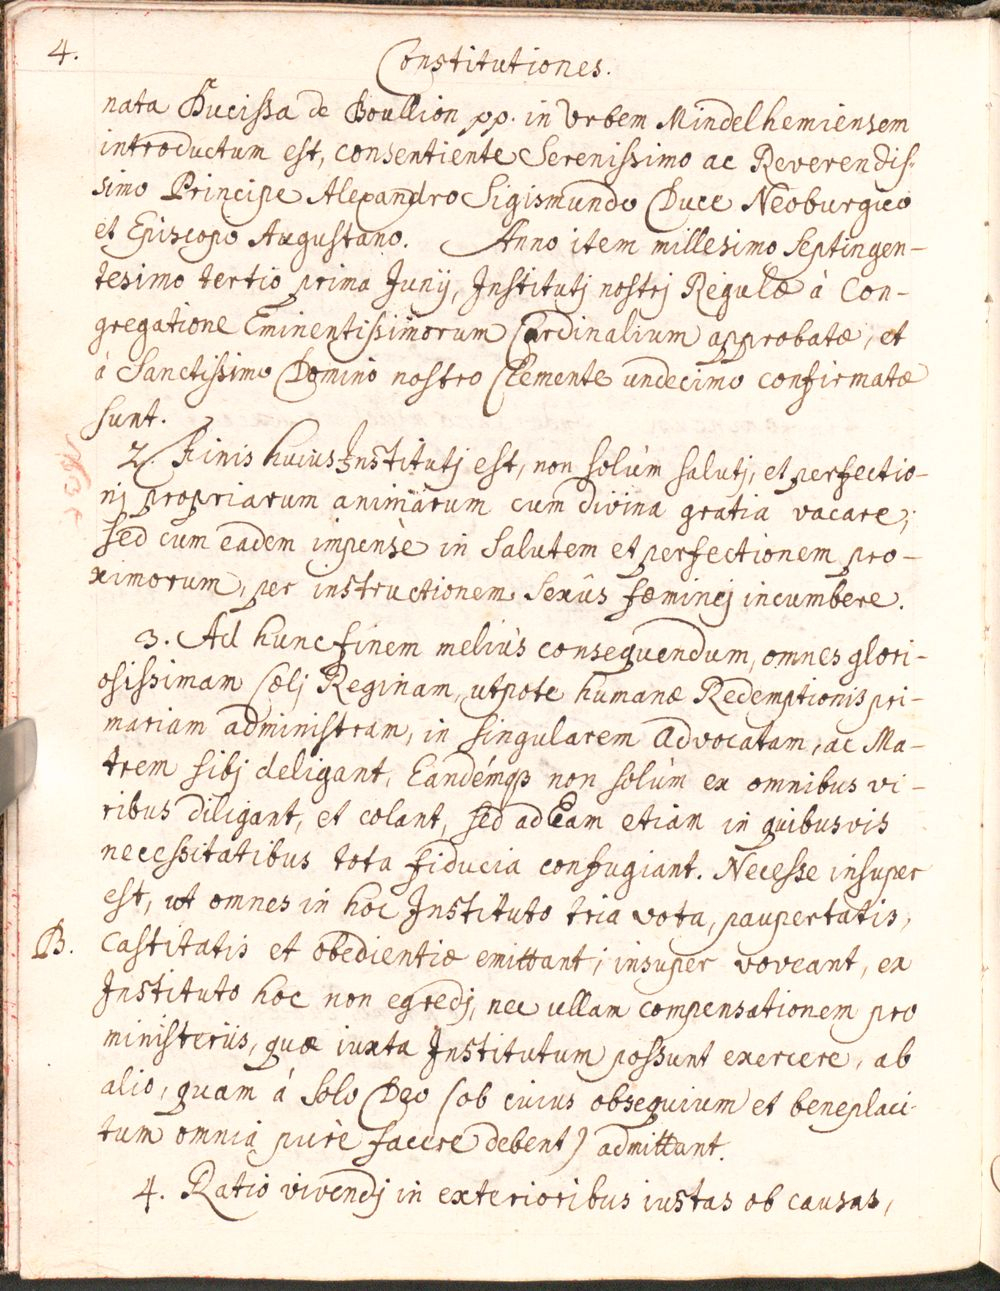 4.
Constitutiones.
nata Ducissa de Boullion pp. in Urbem Mindelhemiensem
introductum est, consentiente Serenissimo ac Reverendis-
simo Principe Alexandro Sigismundo Duce Neoburgico
et Episcopo Augustano. Anno item millesimo septingen-
tesimo tertio prima Junij, Institutj nostrj Regulæ à Con-
gregatione Eminentissimorum Cardinalium approbatæ, et
à Sanctissimo Domino nostro Clemente undecimo confirmatæ
sunt.
2. Finis huius Institutj est, non solùm salutj, et perfectio-
nj propriarum animarum cum divina gratia vacare;
sed cum eadem impensè in salutem et perfectionem pro-
ximorum, per instructionem Sexûs fœminej incumbere.
3. Ad hunc finem meliùs consequendum, omnes glori-
osissimam Cœlj Reginam, utpote humanæ Redemptionis pri-
mariam administram, in singularem advocatam, ac Ma-
trem sibj deligant, Eandémq3 non solùm ex omnibus vi-
ribus diligant, et colant, sed ad Eam etiam in quibusvis
necessitatibus tota fiducia confugiant. Necesse insuper
est, ut omnes in hoc Instituto tria vota, paupertatis,
B. castitatis et obedientiæ emittant; insuper voveant, ex
Instituto hoc non egredj, nec ullam compensationem pro
ministeriis, quæ iuxta Institutum possunt exercere, ab
alio, quam à solo Deo (ob cuius obsequium et beneplaci-
tum omnia purè facere debent) admittant.
4. Ratio vivendj in exterioribus iustas ob causas,